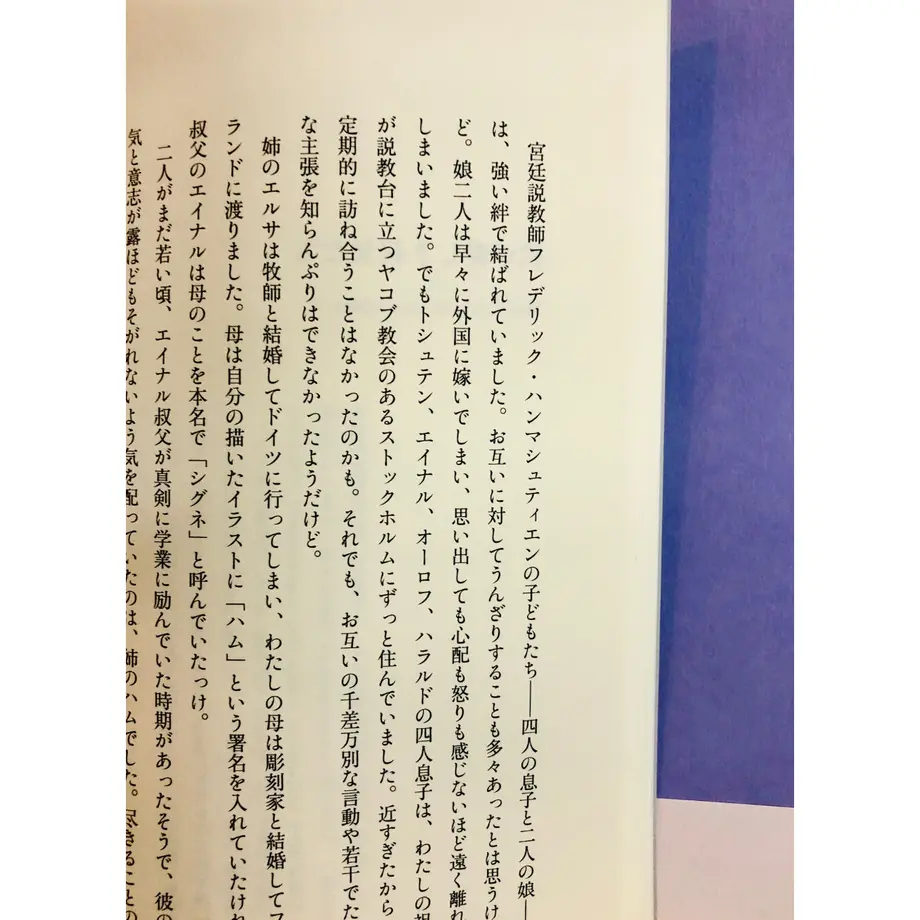 宮廷説教師フレデリック・ハンマシュティエンの子どもたち――四人の息子と二人の娘―
は、強い絆で結ばれていました。お互いに対してうんざりすることも多々あったとは思うけ
ど。娘二人は早々に外国に嫁いでしまい、思い出しても心配も怒りも感じないほど遠く離れ
しまいました。でもトシュテン、エイナル、オーロフ、ハラルドの四人息子は、わたしの祖
が説教台に立つヤコブ教会のあるストックホルムにずっと住んでいました。近すぎたから
定期的に訪ね合うことはなかったのかも。それでも、お互いの千差万別な言動や若干でた
な主張を知らんぷりはできなかったようだけど。
姉のエルサは牧師と結婚してドイツに行ってしまい、わたしの母は彫刻家と結婚してフ
ランドに渡りました。母は自分の描いたイラストに「ハム」という署名を入れていたけれ
叔父のエイナルは母のことを本名で「シグネ」と呼んでいたっけ。
二人がまだ若い頃、エイナル叔父が真剣に学業に励んでいた時期があったそうで、彼の
気と意志が露ほどもそがれないよう気を配っていたのは、姉のハムでした。尽きることの